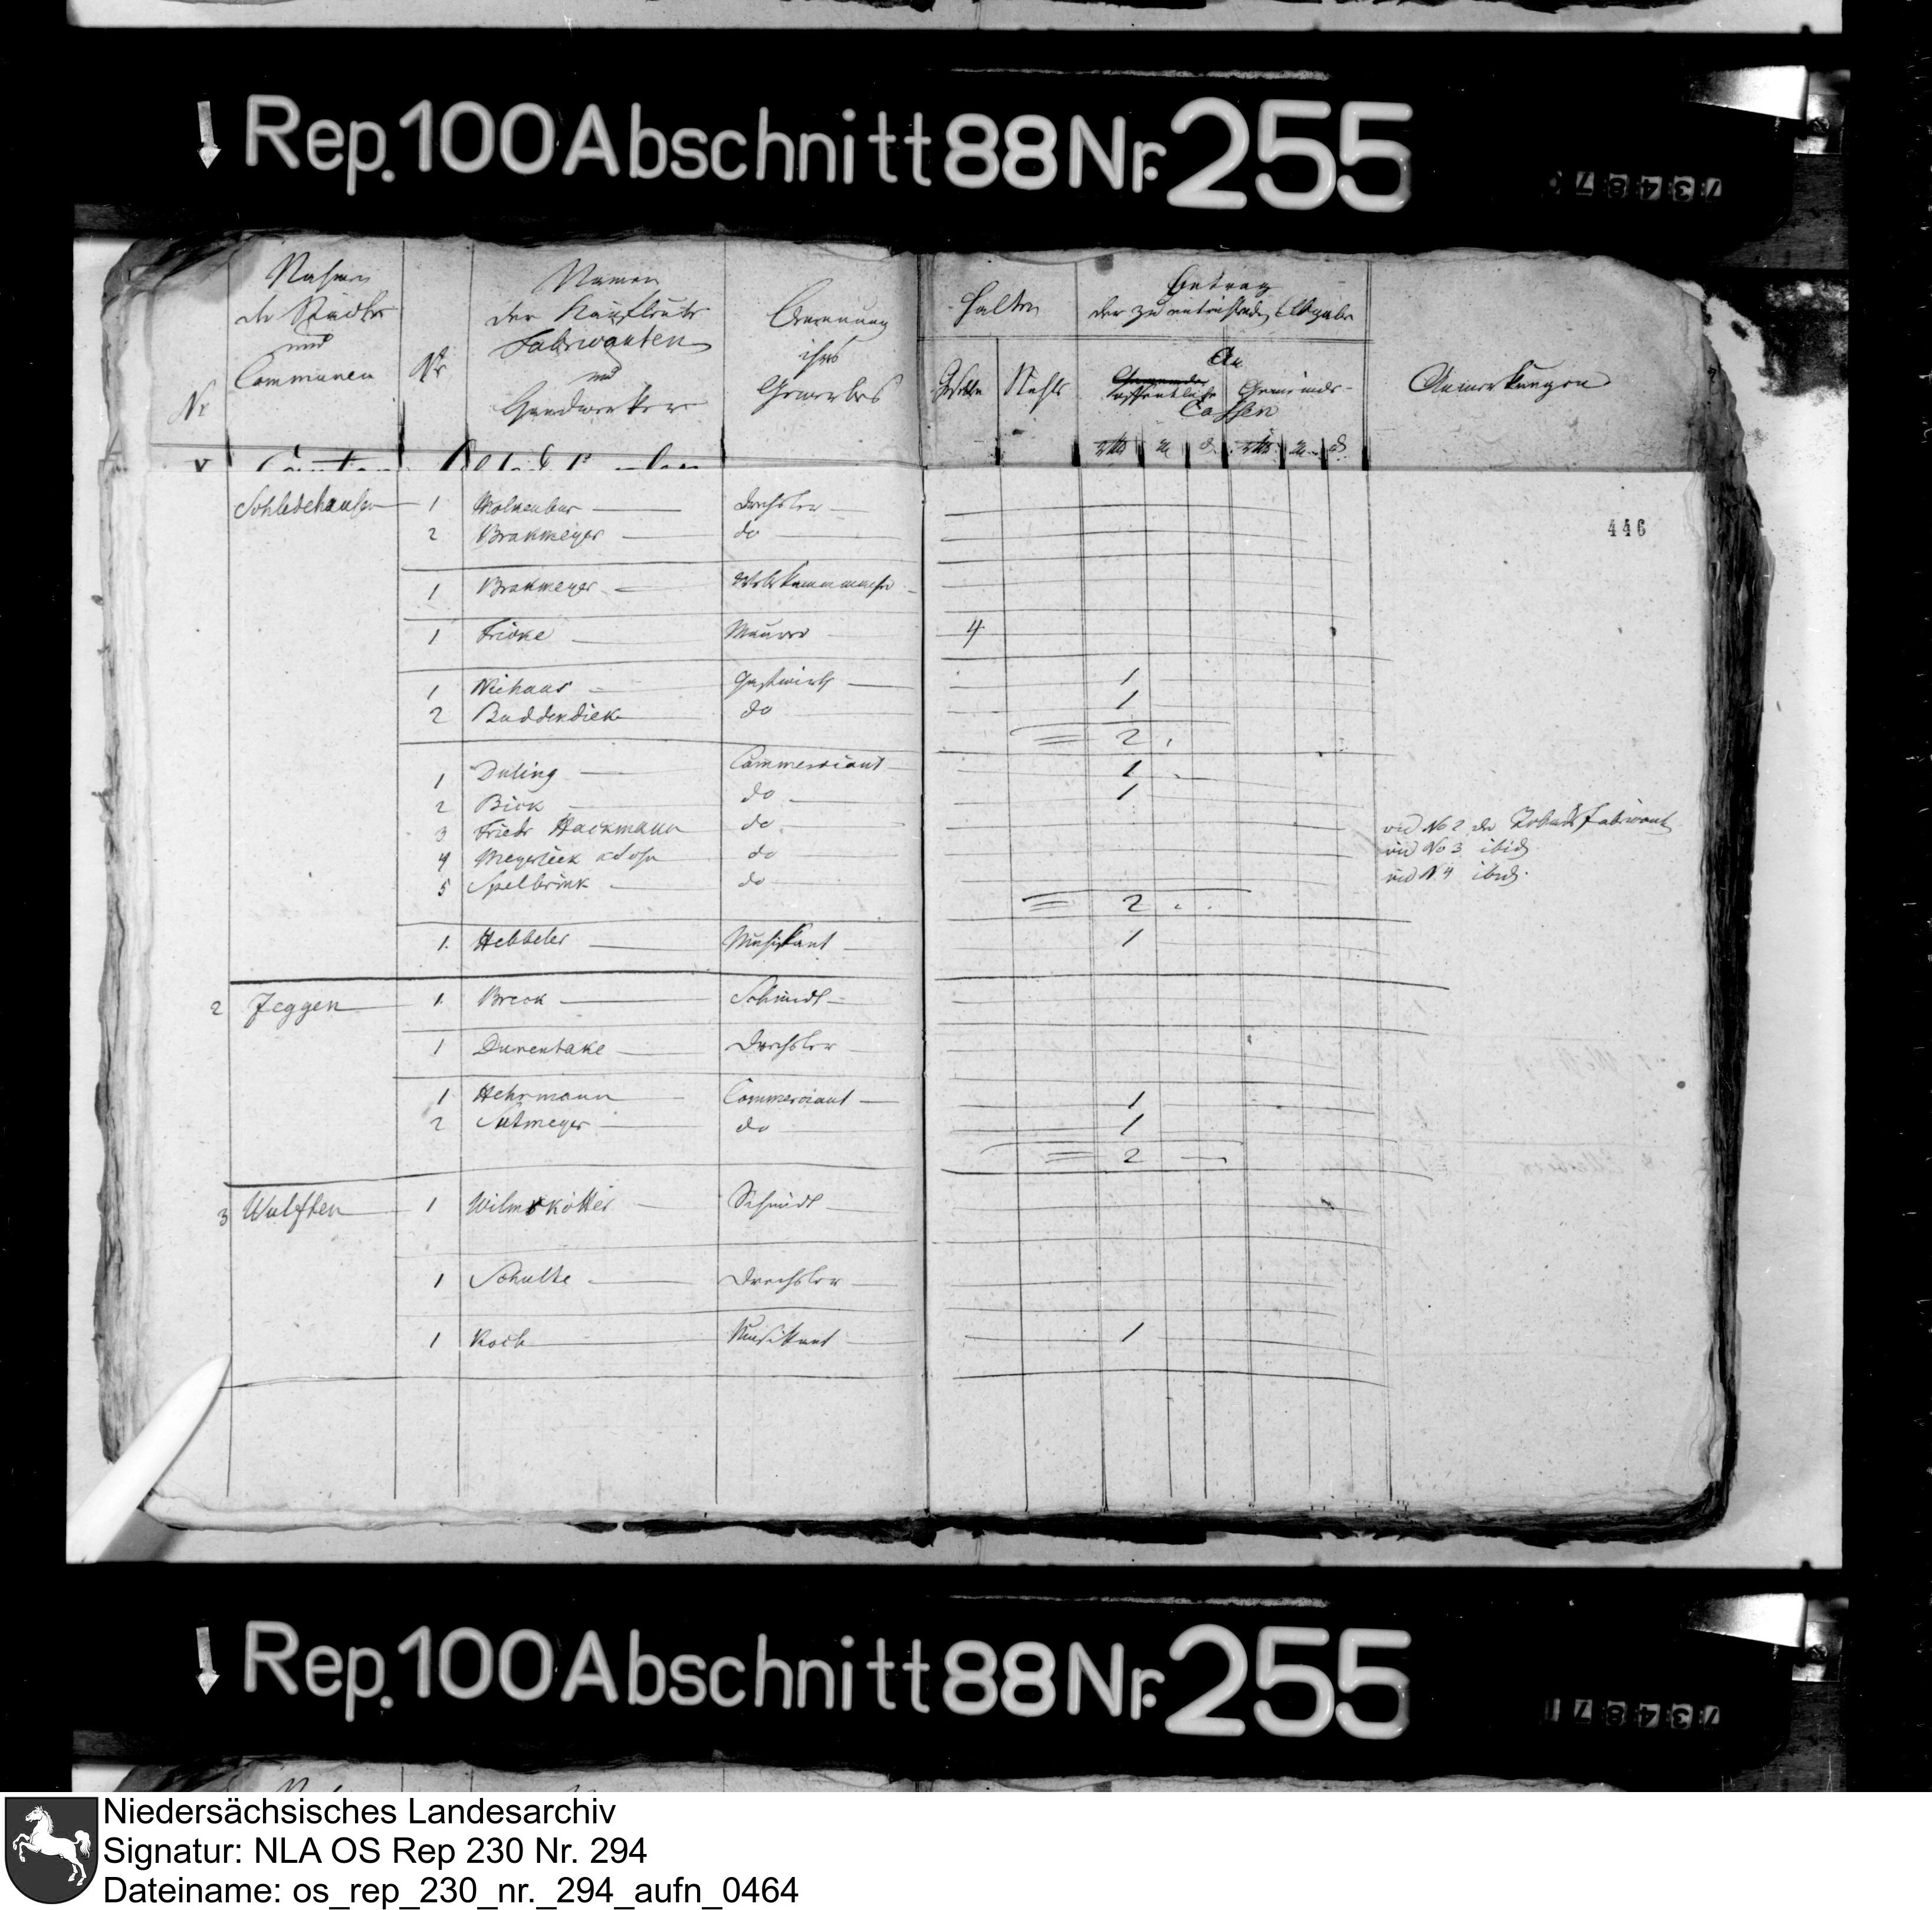 Rep. 100 Abschnitt 88 Nr. 255
73487
Nr
Nahmen
der Städte
und
Communen
Nr
Namen
der Kaufleute
Fabricanten
und
Handwerker
Benennung
ihres
Gewerbes
Halten
Gesellen
Stühle
Betrag
der zu entrichtenden Abgabe
An
oeffentliche
Gemeinde-
Cassen
Anmerkungen
V Canton
446
Schledehausen 1 Drechsler
2 Brakmeyer do
1 Brakmeyer
1 Fricke Maurer 4
1 Niehaus Gastwirth 1
2 Buddendiek do 1
= 2
1 Duling Commerciant 1
2 Bick do 1
3 Friedr Hackmann do vid No 2 der Fabricant
4 do vid No 3 ibid
5 Spelbrink do vid N 4 ibid.
= 2
1 Hebbeler Musikant 1
2 Jeggen 1 Breck Schmidt
1 Drechsler
1 Hehrmann Commerciant 1
2 Sutmeyer do 1
= 2
3 Wulften 1 Wilmskötter Schmidt
1 Schulte Drechsler
1 Koch Musikant 1
Rep. 100 Abschnitt 88 Nr. 255
734871
Niedersächsisches Landesarchiv
Signatur: NLA OS Rep 230 Nr. 294
Dateiname: os_rep_230_nr._294_aufn_0464